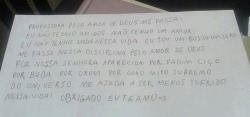 PROFESSORA PELO AMOR DE DEUS ME PASSA!
EU NÃO TENHO UM DOS NÃO TENHO UM AMOR
EU NÃO TENHO NADA NESSA VIDA. EU SOU UM
ME PASSA NESSA DISCIPLINA PELO AMOR DE DEUS
POR NOSSA SENHORA APARECIDA POR PADIM CIÇO
POR BUDA POR QUAO MITO SUPREMO
DO UNIVERSO. ME AJUDA A SER MENOS SOFRIDO
NESSA VIDA! OBRIGADO EU TE AMO <3